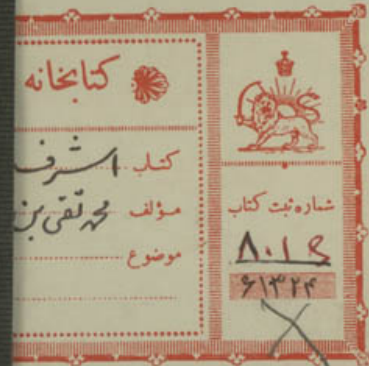 کتابخانه
کتاب اشرف
مؤلف محمد تقی بن
موضوع
شماره ثبت کتاب
۶۱۳۲۴